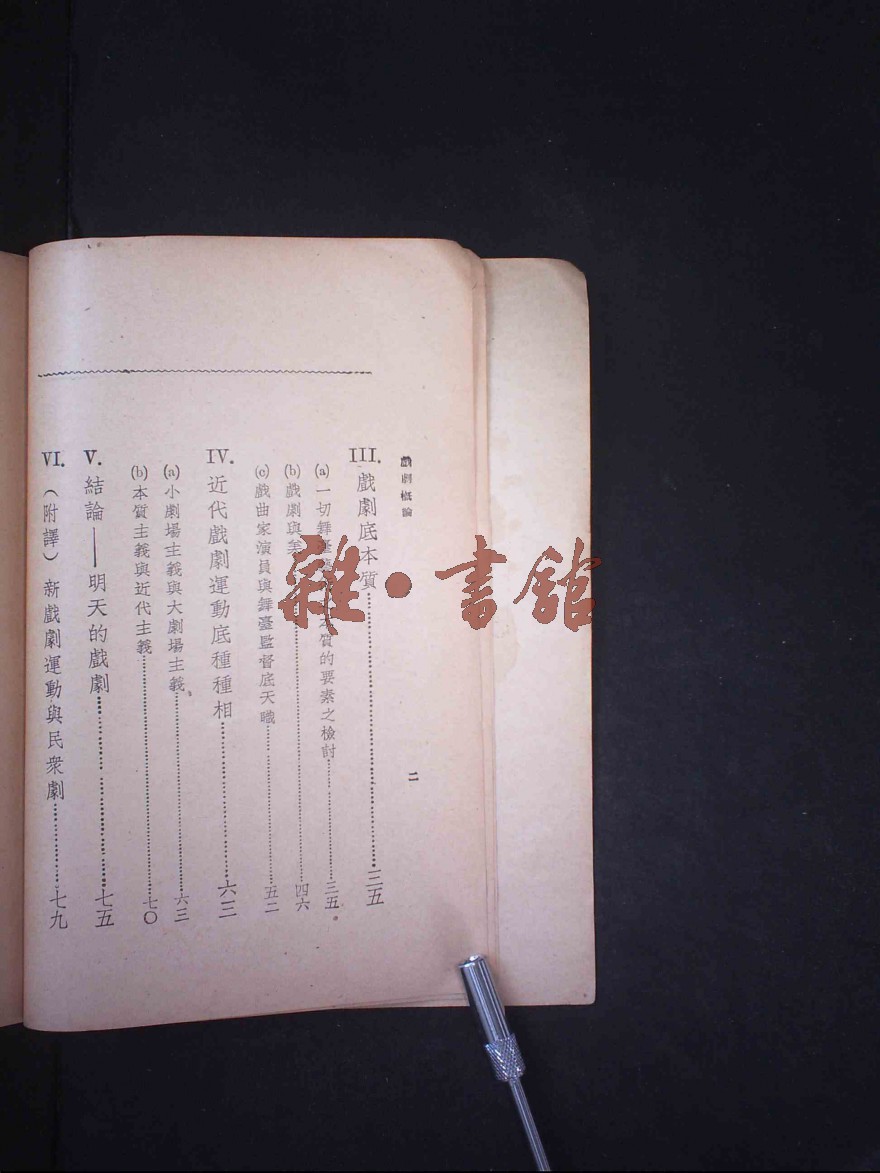 戲劇概論
二
III. 戲劇底本質……三五
(a) 一切舞臺 本質的要素之檢討……三五
(b) 戲劇與美……四六
(c) 戲曲家演員與舞臺監督底天職……五二
IV. 近代戲劇運動底種種相……六三
(a) 小劇場主義與大劇場主義……六三
(b) 本質主義與近代主義……七〇
V. 結論——明天的戲劇……七五
VI. (附譯) 新戲劇運動與民衆劇……七九
雜·書館